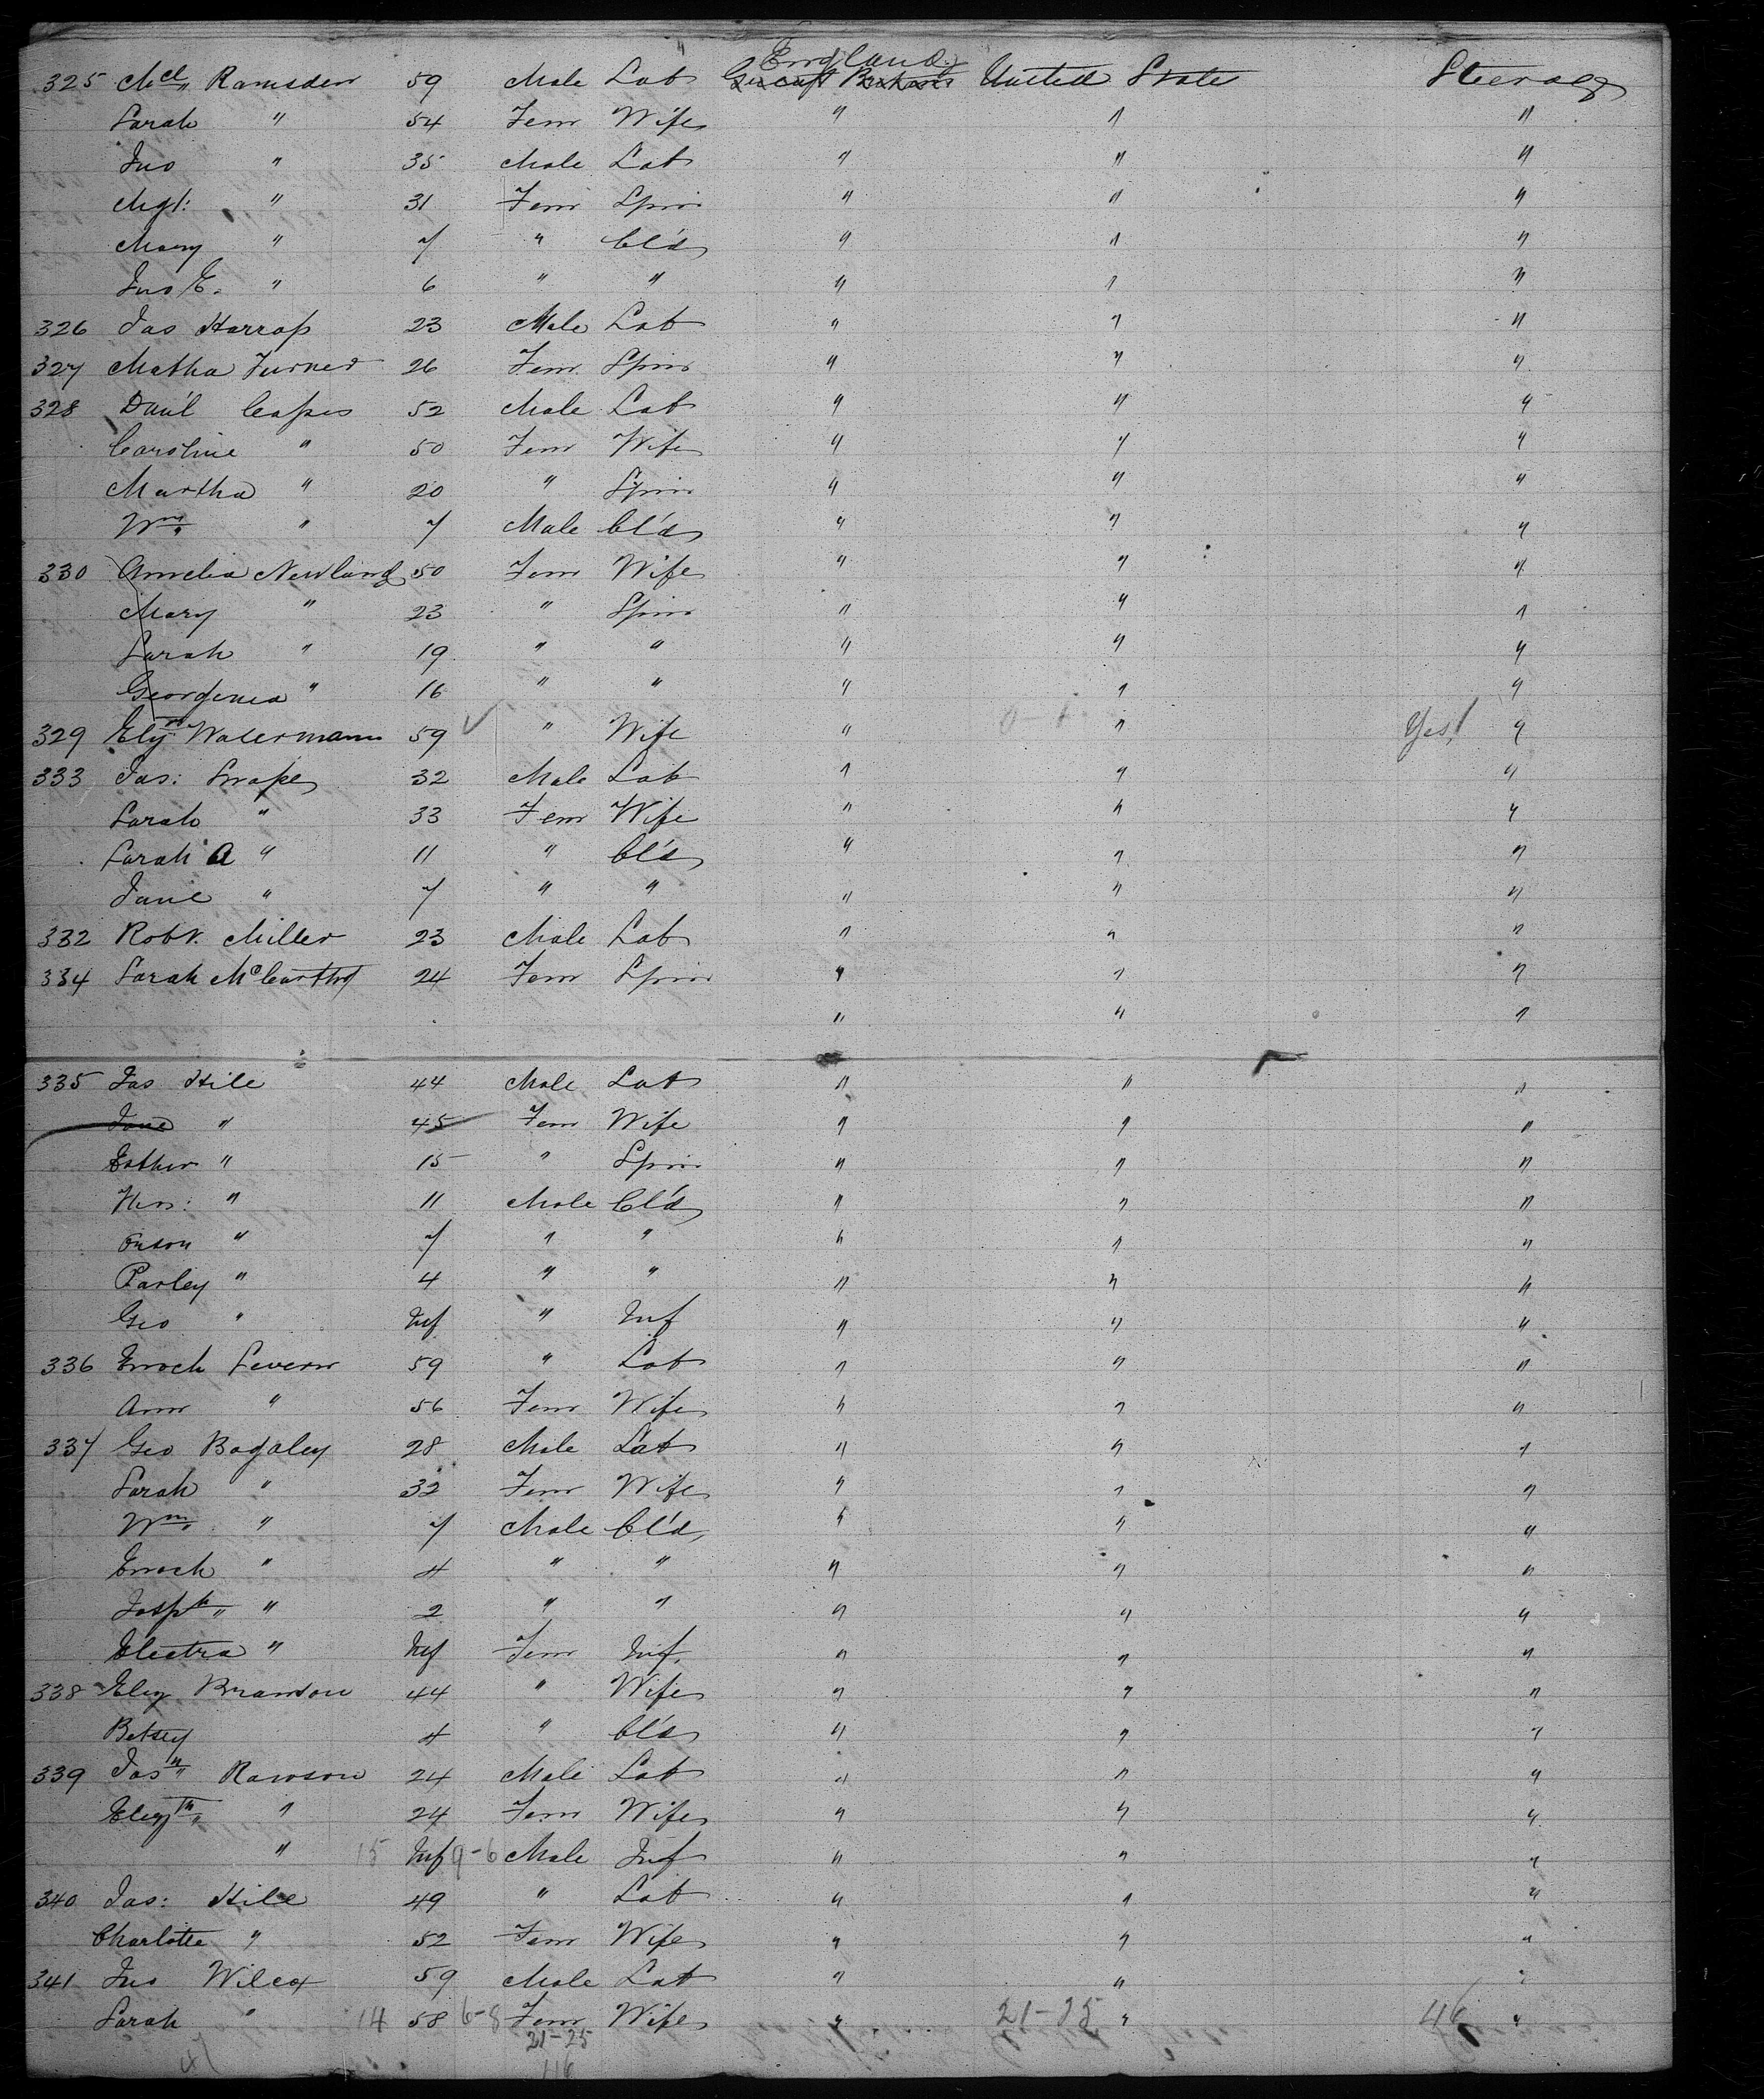 England
325 Mcl. Ramsden 59 Male Lab United States Steerage
Sarah " 54 Fem Wife " " "
Jno " 35 Male Lab " " "
Mgt: " 31 Fem Spin " " "
Mary " 7 " Cl'd " " "
Jno E. " 6 " " " " "
326 Jas Harrop 23 Male Lab " " "
327 Matha Turner 26 Fem Spin " " "
328 Dan'l Capes 52 Male Lab " " "
Caroline " 50 Fem Wife " " "
Martha " 20 " Spin " " "
Wm " 7 Male Cl'd " " "
330 Amelia Newland 50 Fem Wife " " "
Mary " 23 " Spin " " "
Sarah " 19 " " " " "
Georgenia " 16 " " " " "
329 Elizth Watermann 59 " Wife " " Yes! "
333 Jas: Snape 32 Male Lab " " "
Sarah " 33 Fem Wife " " "
Sarah A " 11 " Cl'd " " "
Jane " 7 " " " " "
332 Robt. Miller 23 Male Lab " " "
334 Sarah McCarthy 24 Fem Spin " " "
" " "
335 Jas Hill 44 Male Lab " " "
Jane " 45 Fem Wife " " "
Esther " 15 " Spin " " "
Hen: " 11 Male Cl'd " " "
Orson " 7 " " " " "
Parley " 4 " " " " "
Geo " Inf " Inf " " "
336 Enoch Severn 59 " Lab " " "
Ann " 56 Fem Wife " " "
337 Geo Bagaley 28 Male Lab " " "
Sarah " 32 Fem Wife " " "
Wm " 7 Male Cl'd " " "
Enoch " 4 " " " " "
Josph " 2 " " " " "
Electra " Inf Fem Inf. " " "
338 Eliz Bramson 44 " Wife " " "
Betsey 4 " Cl'd " " "
339 Jas Rawson 24 Male Lab " " "
Elizth " 24 Fem Wife " " "
" 15 Inf 9-6 Male Inf " " "
340 Jas: Hill 49 " Lab " " "
Charlotte " 52 Fem Wife " " "
341 Jno Wilcox 59 Male Lab " " "
Sarah " 14 58 6-8 Fem Wife " 21-25 " 46 "
21-25
47